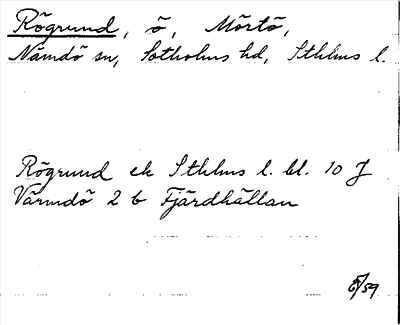 Rögrund, ö, Mörtö,
Nämdö sn, Sotholms hd, Sthlms l.
Rögrund ek Sthlms l. bl. 10 J
Värmdö 2 b Fjärdhällan
/59